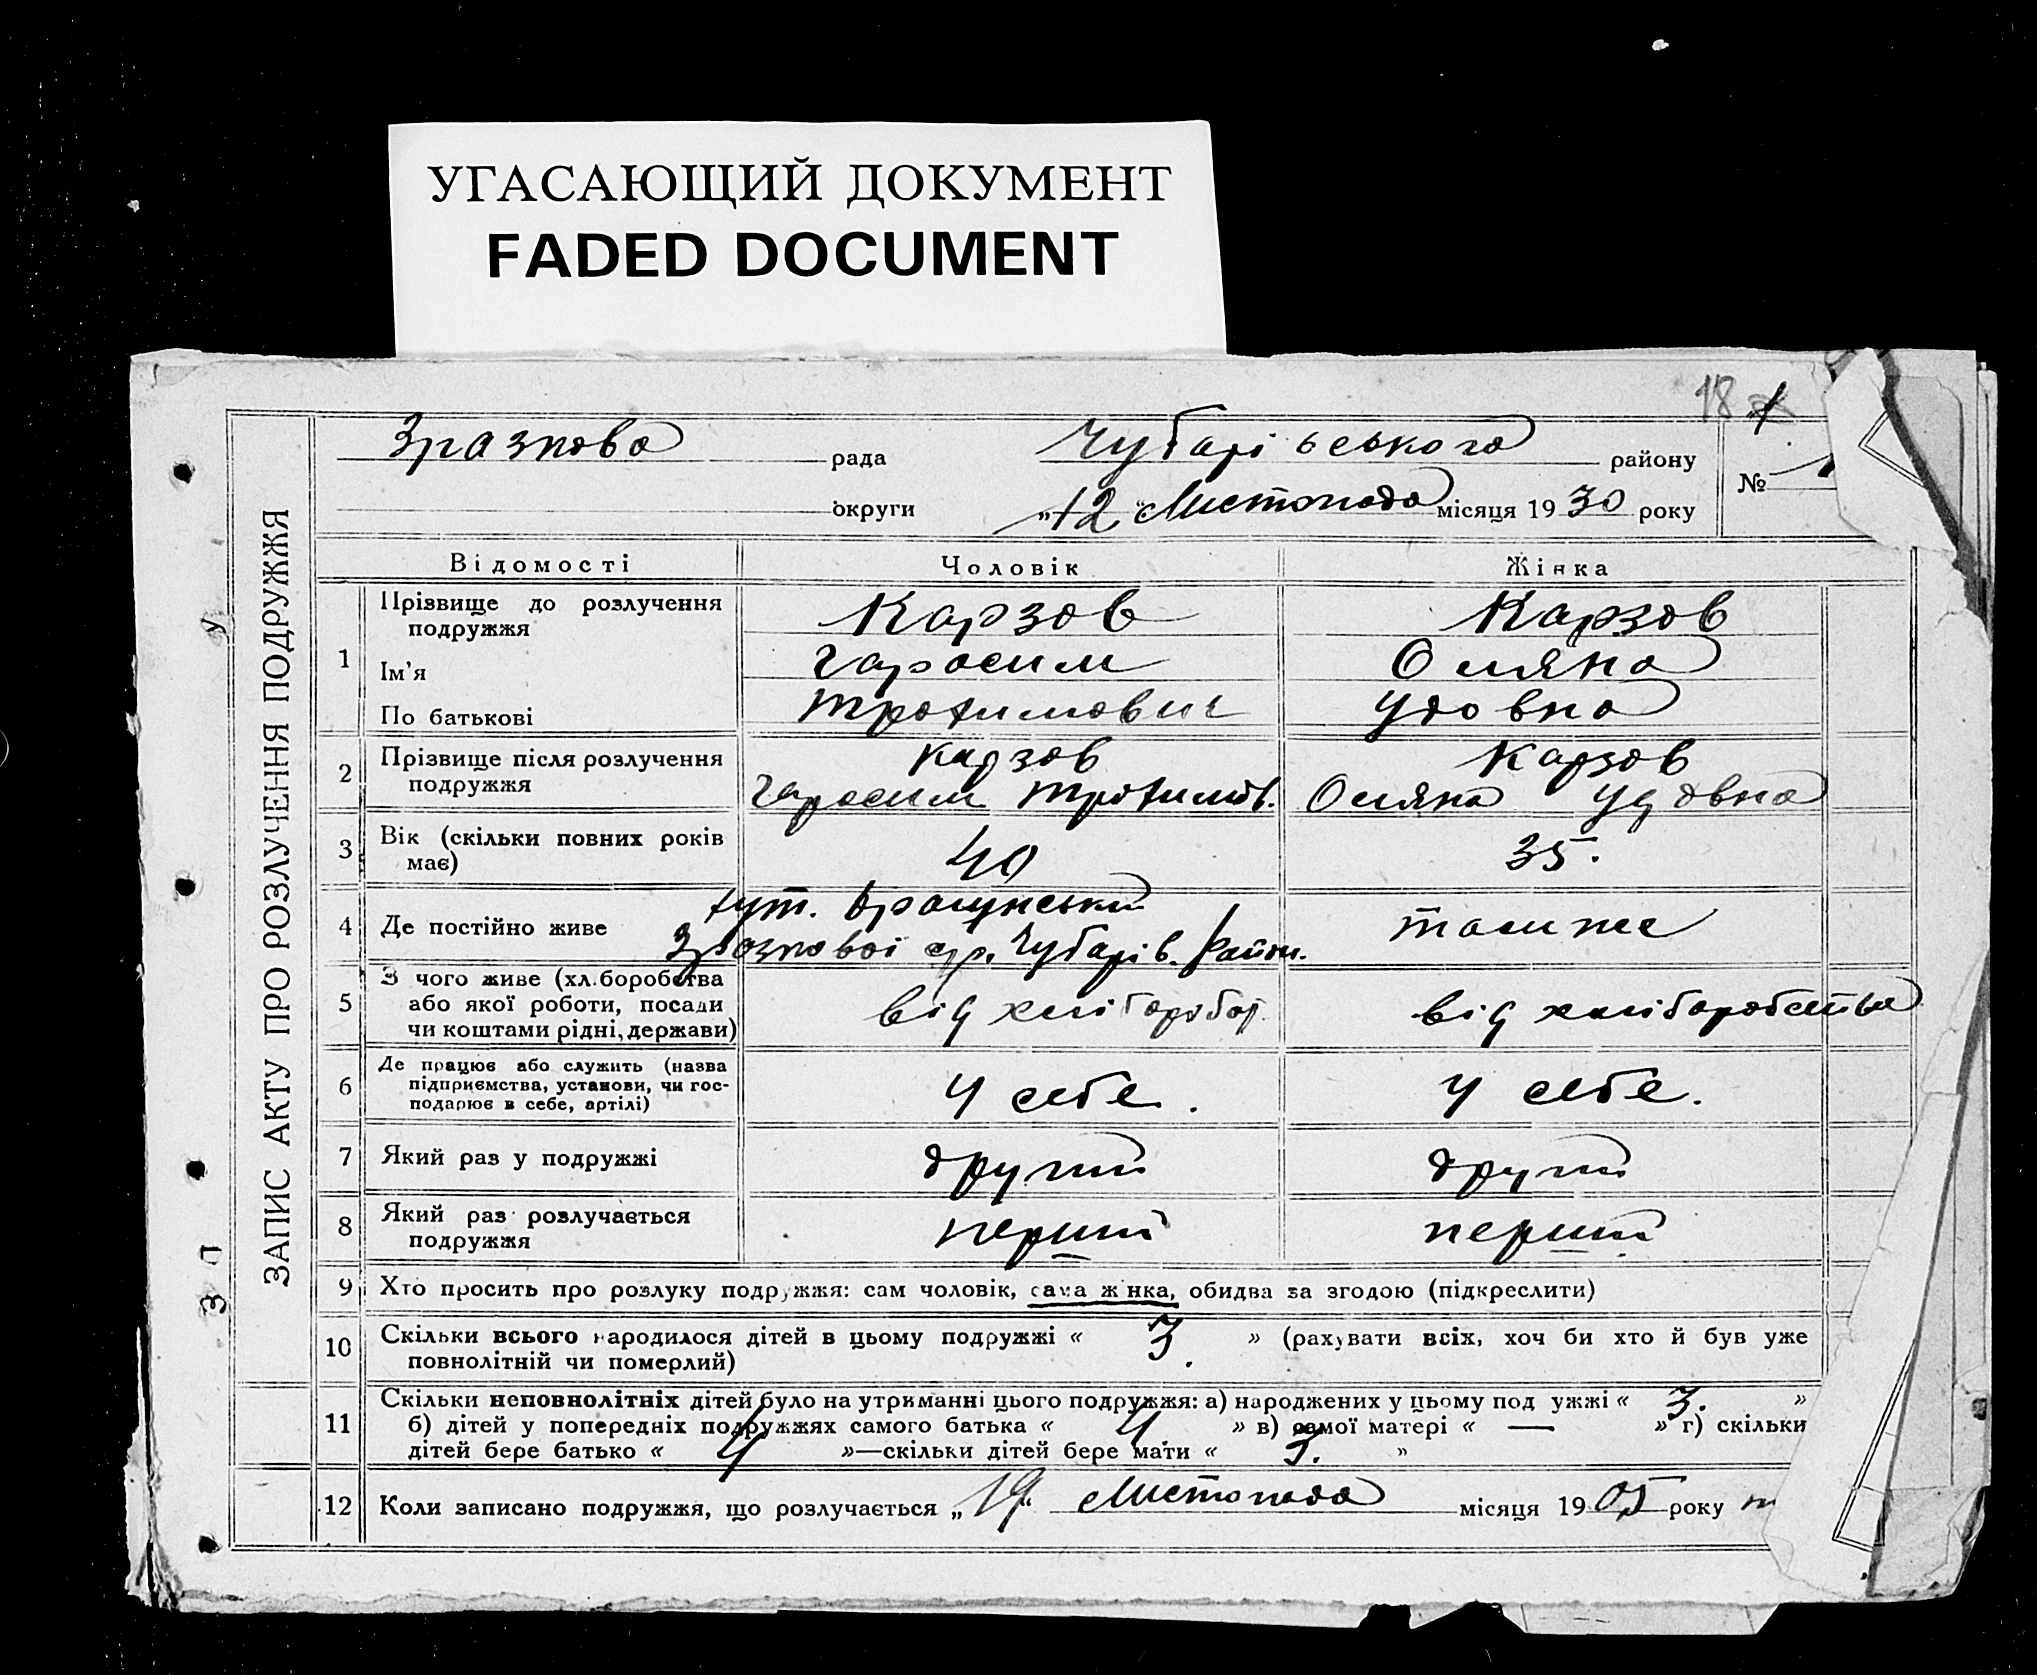 УГАСАЮЩИЙ ДОКУМЕНТ
FADED DOCUMENT
18
Зразкова рада Чубарівського району
№ 1
округи „12“ Листопада місяця 1930 року
ЗАПИС АКТУ ПРО РОЗЛУЧЕННЯ ПОДРУЖЖЯ
Відомості Чоловік Жінка
1 Прізвище до розлучення подружжя Карзов Карзов
Ім'я Гарасим Оляна
По батькові Трохимович Удовна
2 Прізвище після розлучення Карзов Карзов
подружжя Гарасим Трохимов. Оляна Удовна
3 Вік (скільки повних років має) 40 35.
4 Де постійно живе хут.
Зразкової с/р. Чубарів. район. там же
5 З чого живе (хл.боробства
або якої роботи, посади від хліборобст. від хліборобства
чи коштами рідні, держави)
6 Де працює або служить (назва
підприємства, установи, чи гос- у себе. у себе.
подарює в себе, артілі)
7 Який раз у подружжі другий другий
8 Який раз розлучається
подружжя перший перший
9 Хто просить про розлуку подружжя: сам чоловік, сама жінка, обидва за згодою (підкреслити)
10 Скільки всього народилося дітей в цьому подружжі « 3. » (рахувати всіх, хоч би хто й був уже
повнолітній чи померлий)
11 Скільки неповнолітніх дітей було на утриманні цього подружжя: а) народжених у цьому подружжі « 3. »
б) дітей у попередніх подружжях самого батька « 4. » в) самої матері « — » г) скільки
дітей бере батько « 4 »—скільки дітей бере мати « 3. »
12 Коли записано подружжя, що розлучається „19“ Листопада місяця 1905 року